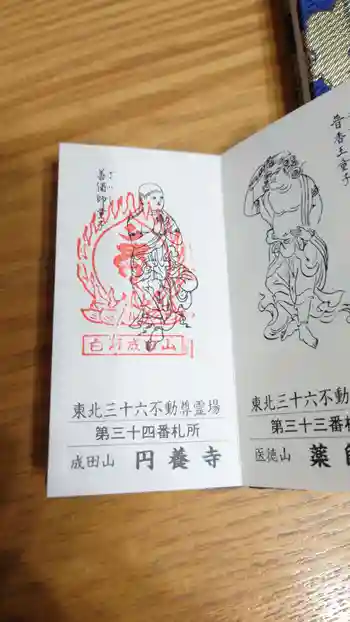 善儞師童子
白河成田山
東北三十六不動尊霊場
第三十四番札所
成田山 円養寺
香王童子
東北三十六不動
第三十三番
医徳山 薬